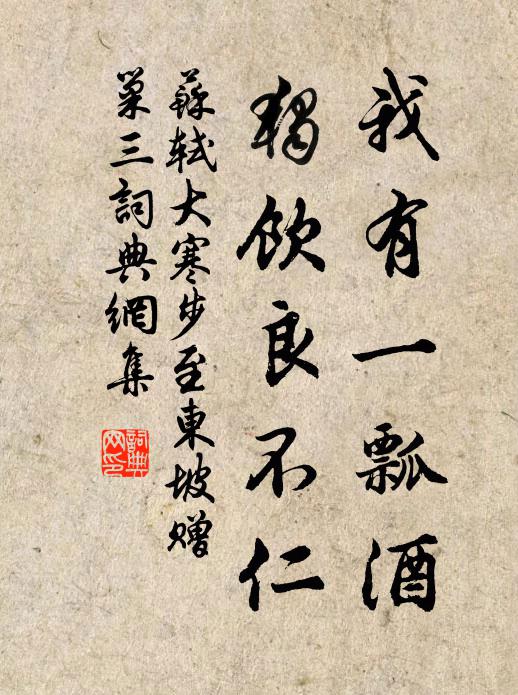 我有一瓢酒
獨飲良不仁
蘇軾大寒步至東坡贈
巢三詞典網集
詞典
网印